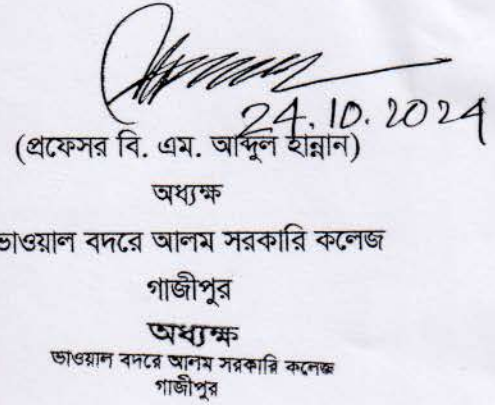 24.10.2024
(প্রফেসর বি. এম. আব্দুল হান্নান)
অধ্যক্ষ
ভাওয়াল বদরে আলম সরকারি কলেজ
গাজীপুর
অধ্যক্ষ
ভাওয়াল বদরে আলম সরকারি কলেজ
গাজীপুর